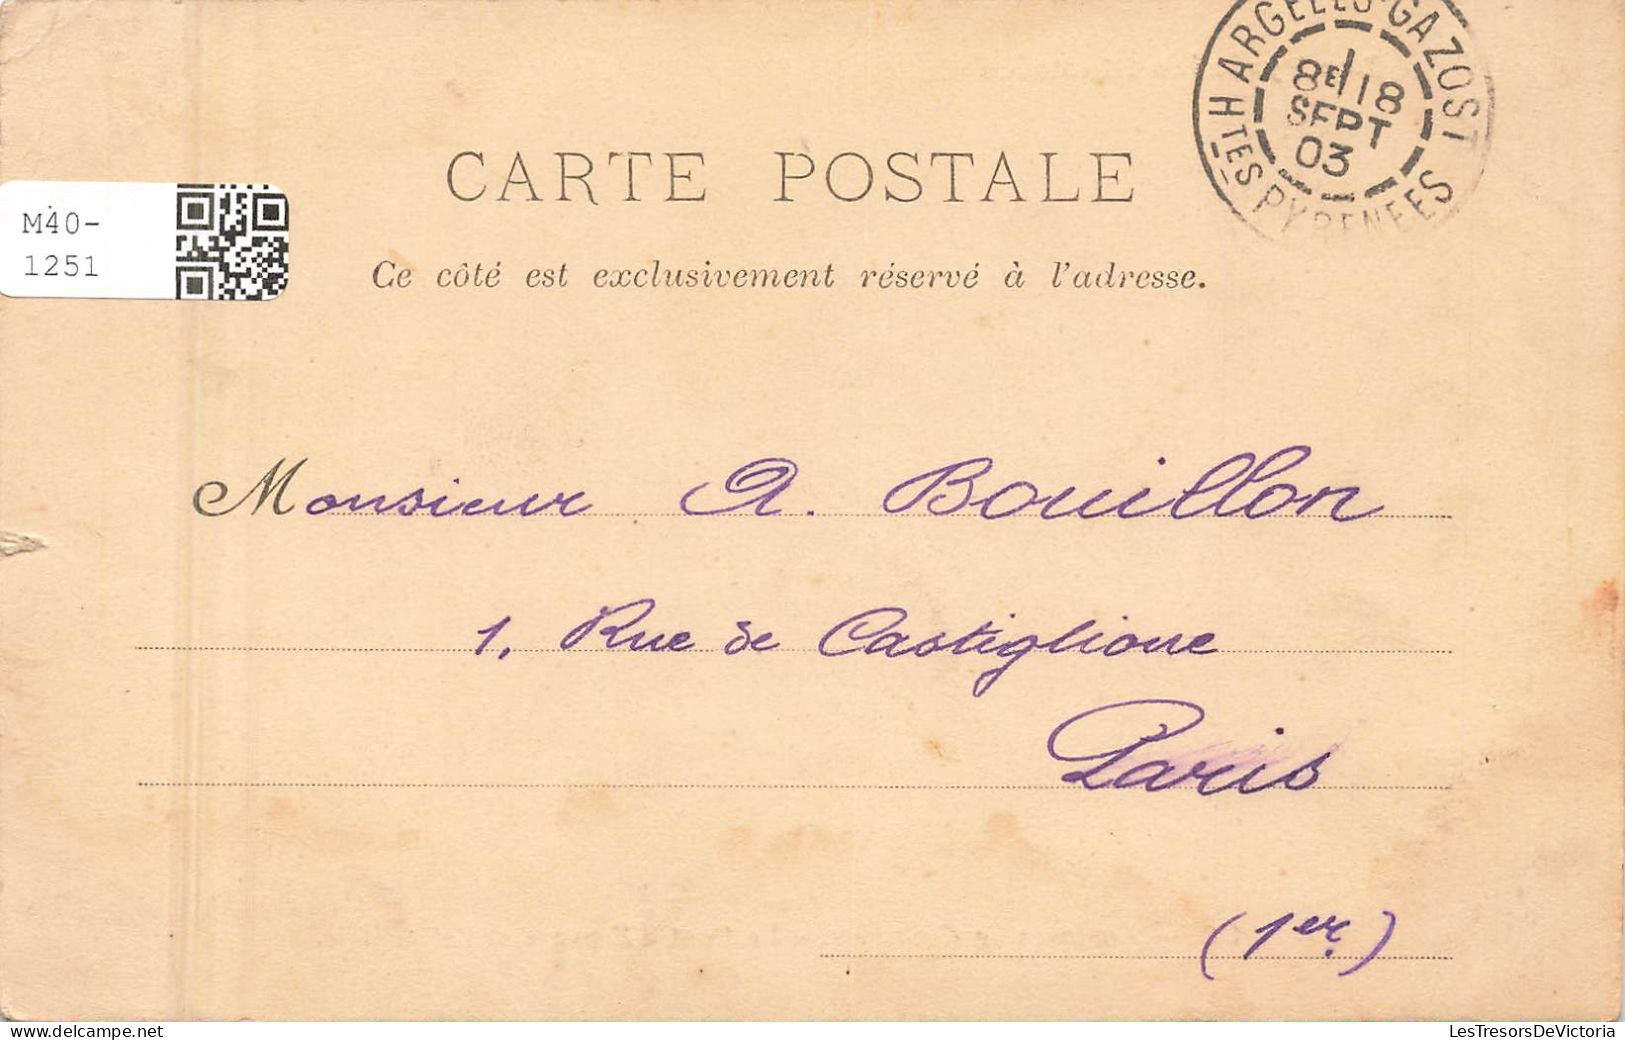 ARGELÈS-GAZOST
8E 18
SEPT
03
HTES PYRENEES
CARTE POSTALE
M40-
1251
Ce côté est exclusivement réservé à l'adresse.
Monsieur A. Bouillon
1, Rue de Castiglione
Paris
(1er)
LesTresorsDeVictoria
delcampe.net